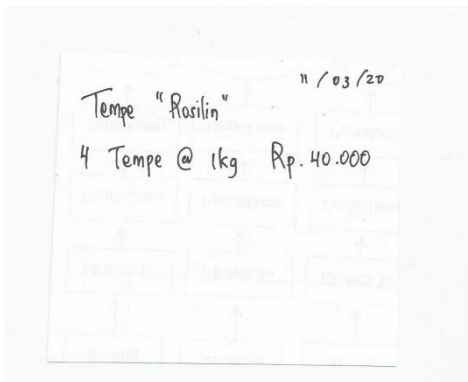 11/03/20
Tempe "Rosilin"
4 Tempe @ 1kg Rp. 40.000